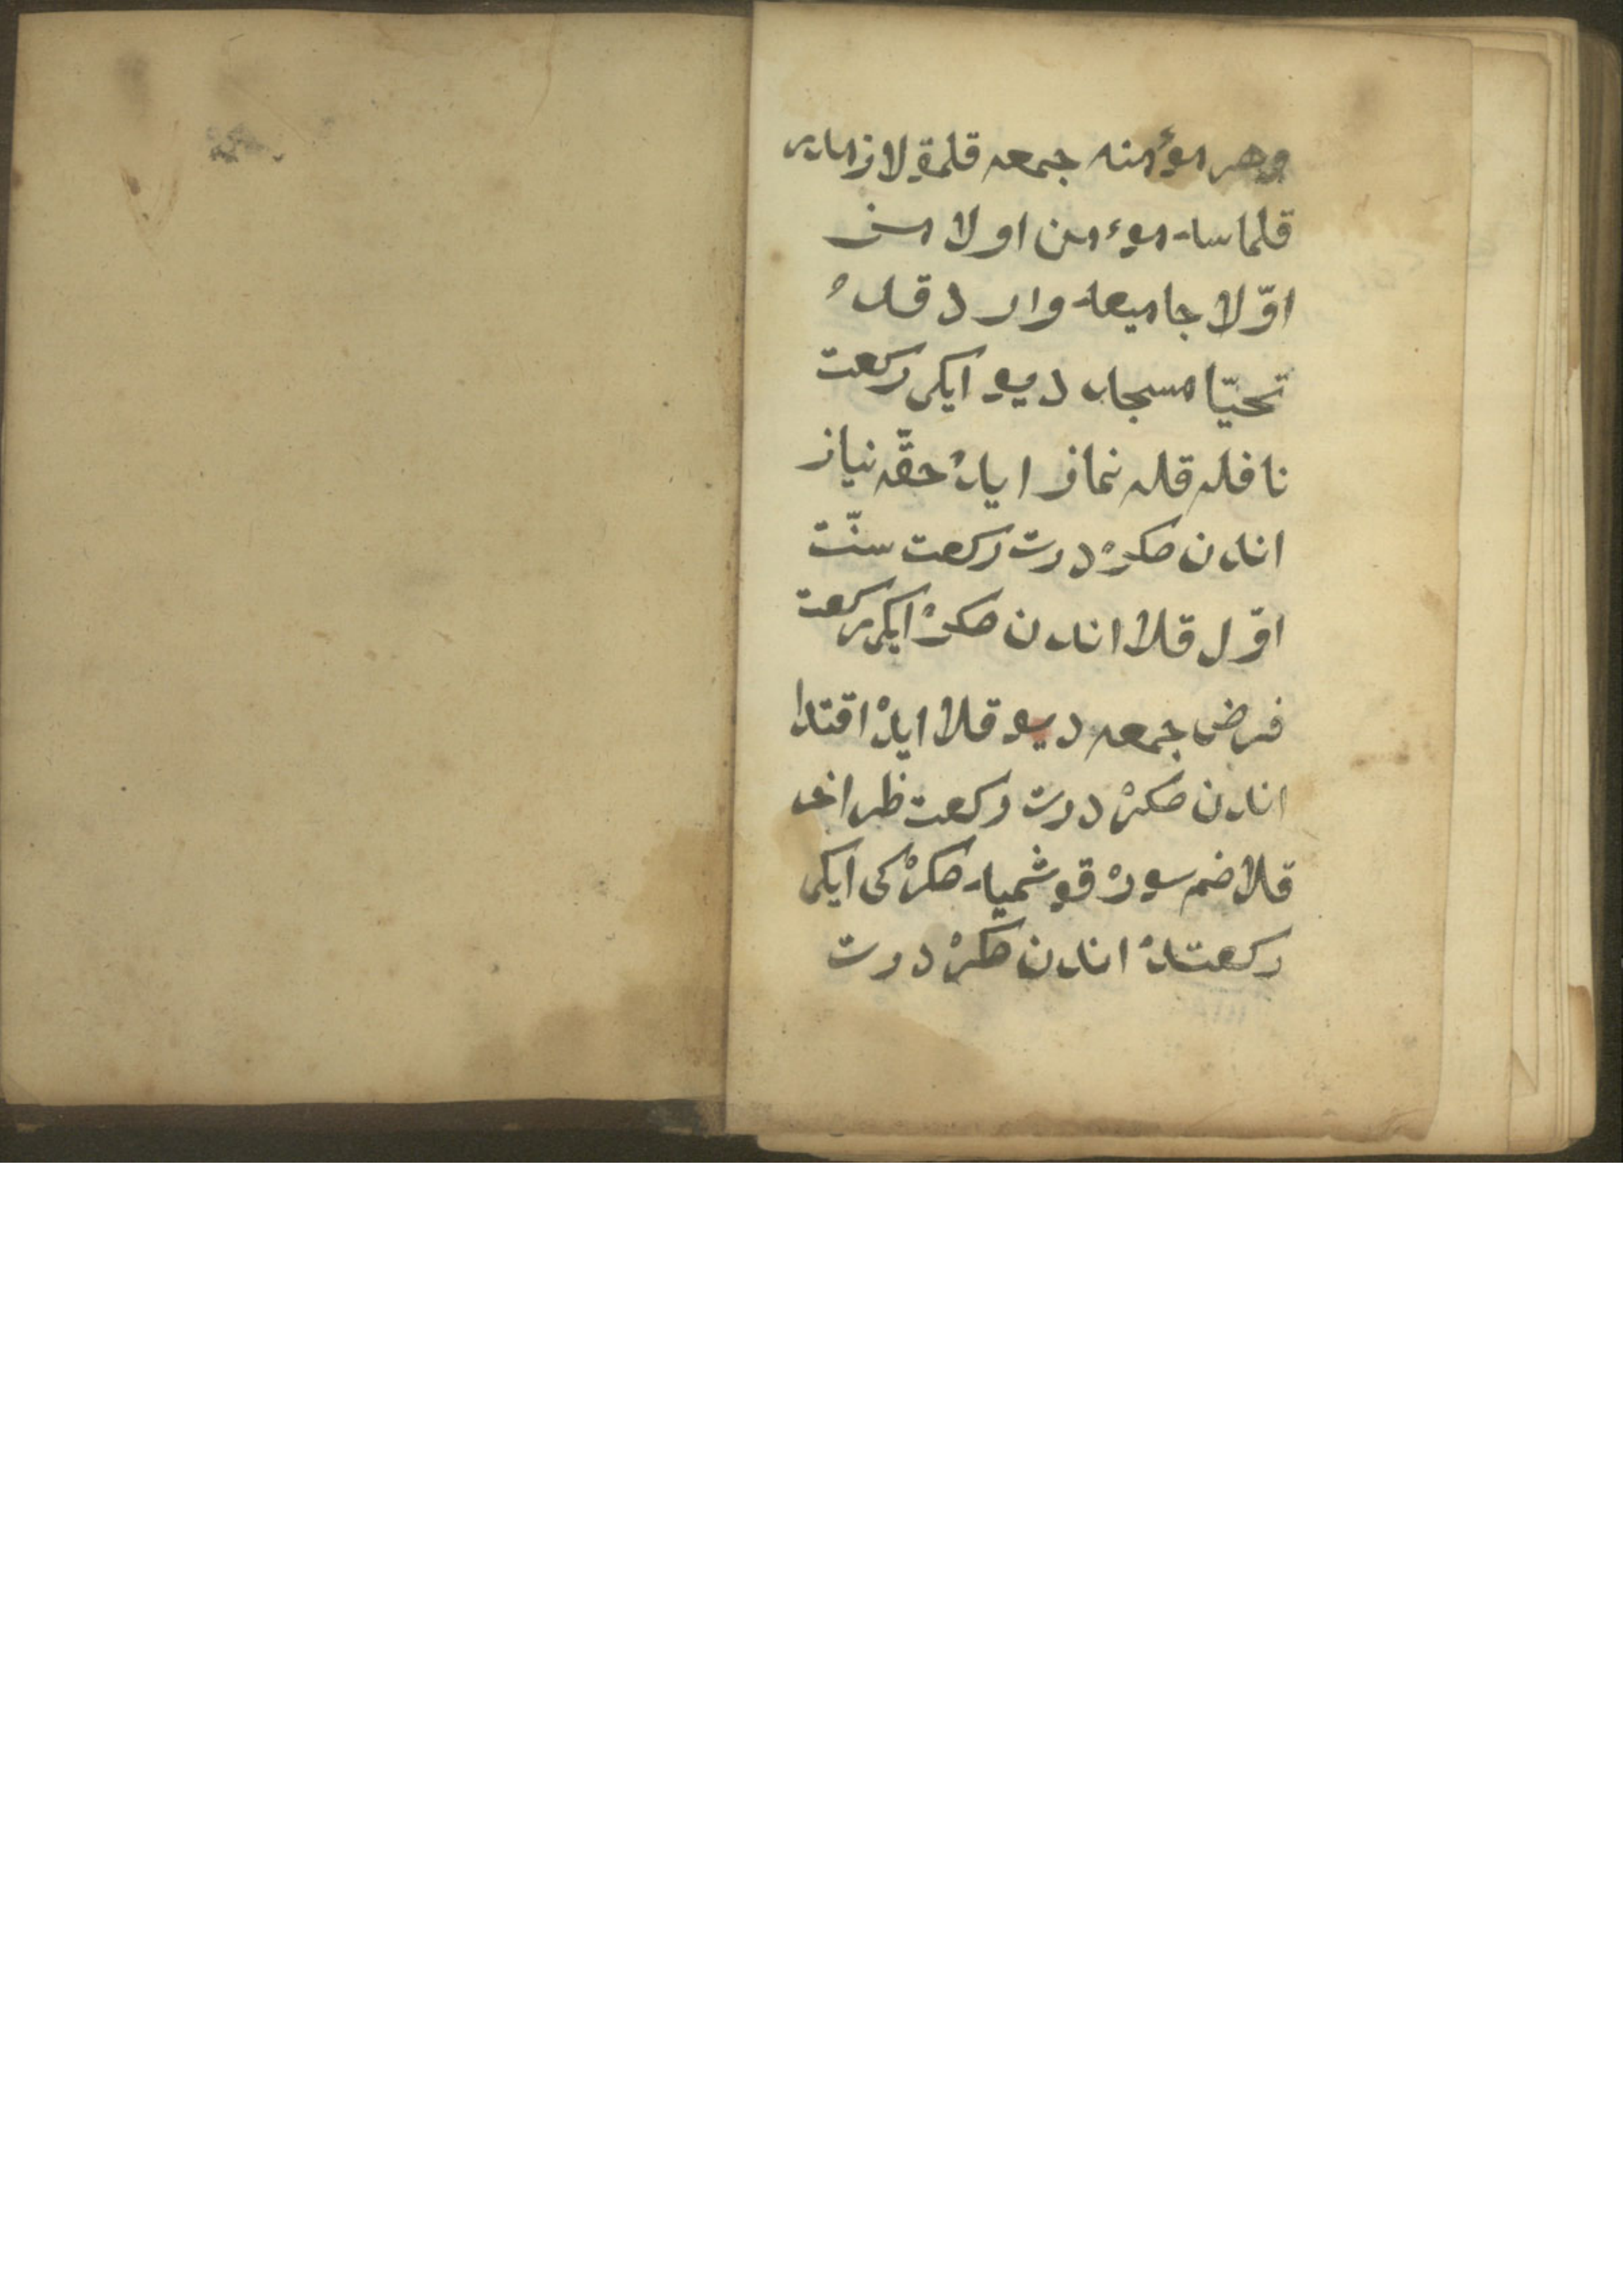 وهر مؤمنه جمعه قلمق لازمدر
قلماسه مؤمن اولامسز
اوّلا جامیعه وارد قده
تحیّا مسجد دیو ایکی رکعت
نافله قله نماز ایده حقّه نیاز
اندن صکره درت رکعت سنّت
اوّل قلا اندن صکره ایکی رکعت
فرض جمعه دیو قلا ایده اقتدا
اندن صکره درت رکعت ظهر اخر
قلا ضم سوره قوشمیه صکره کی ایکی
رکعتده اندن صکره درت